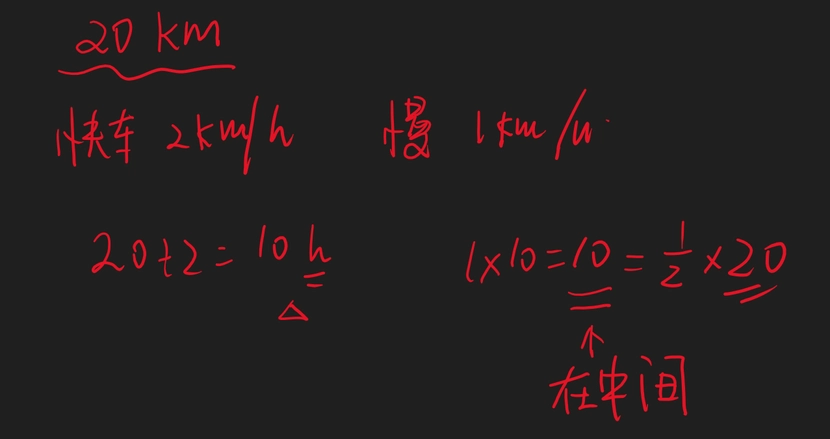 20 km
快车 2km/h 慢 1km/h
20÷2=10h 1×10=10=1/2×20
△ ↑
在中间